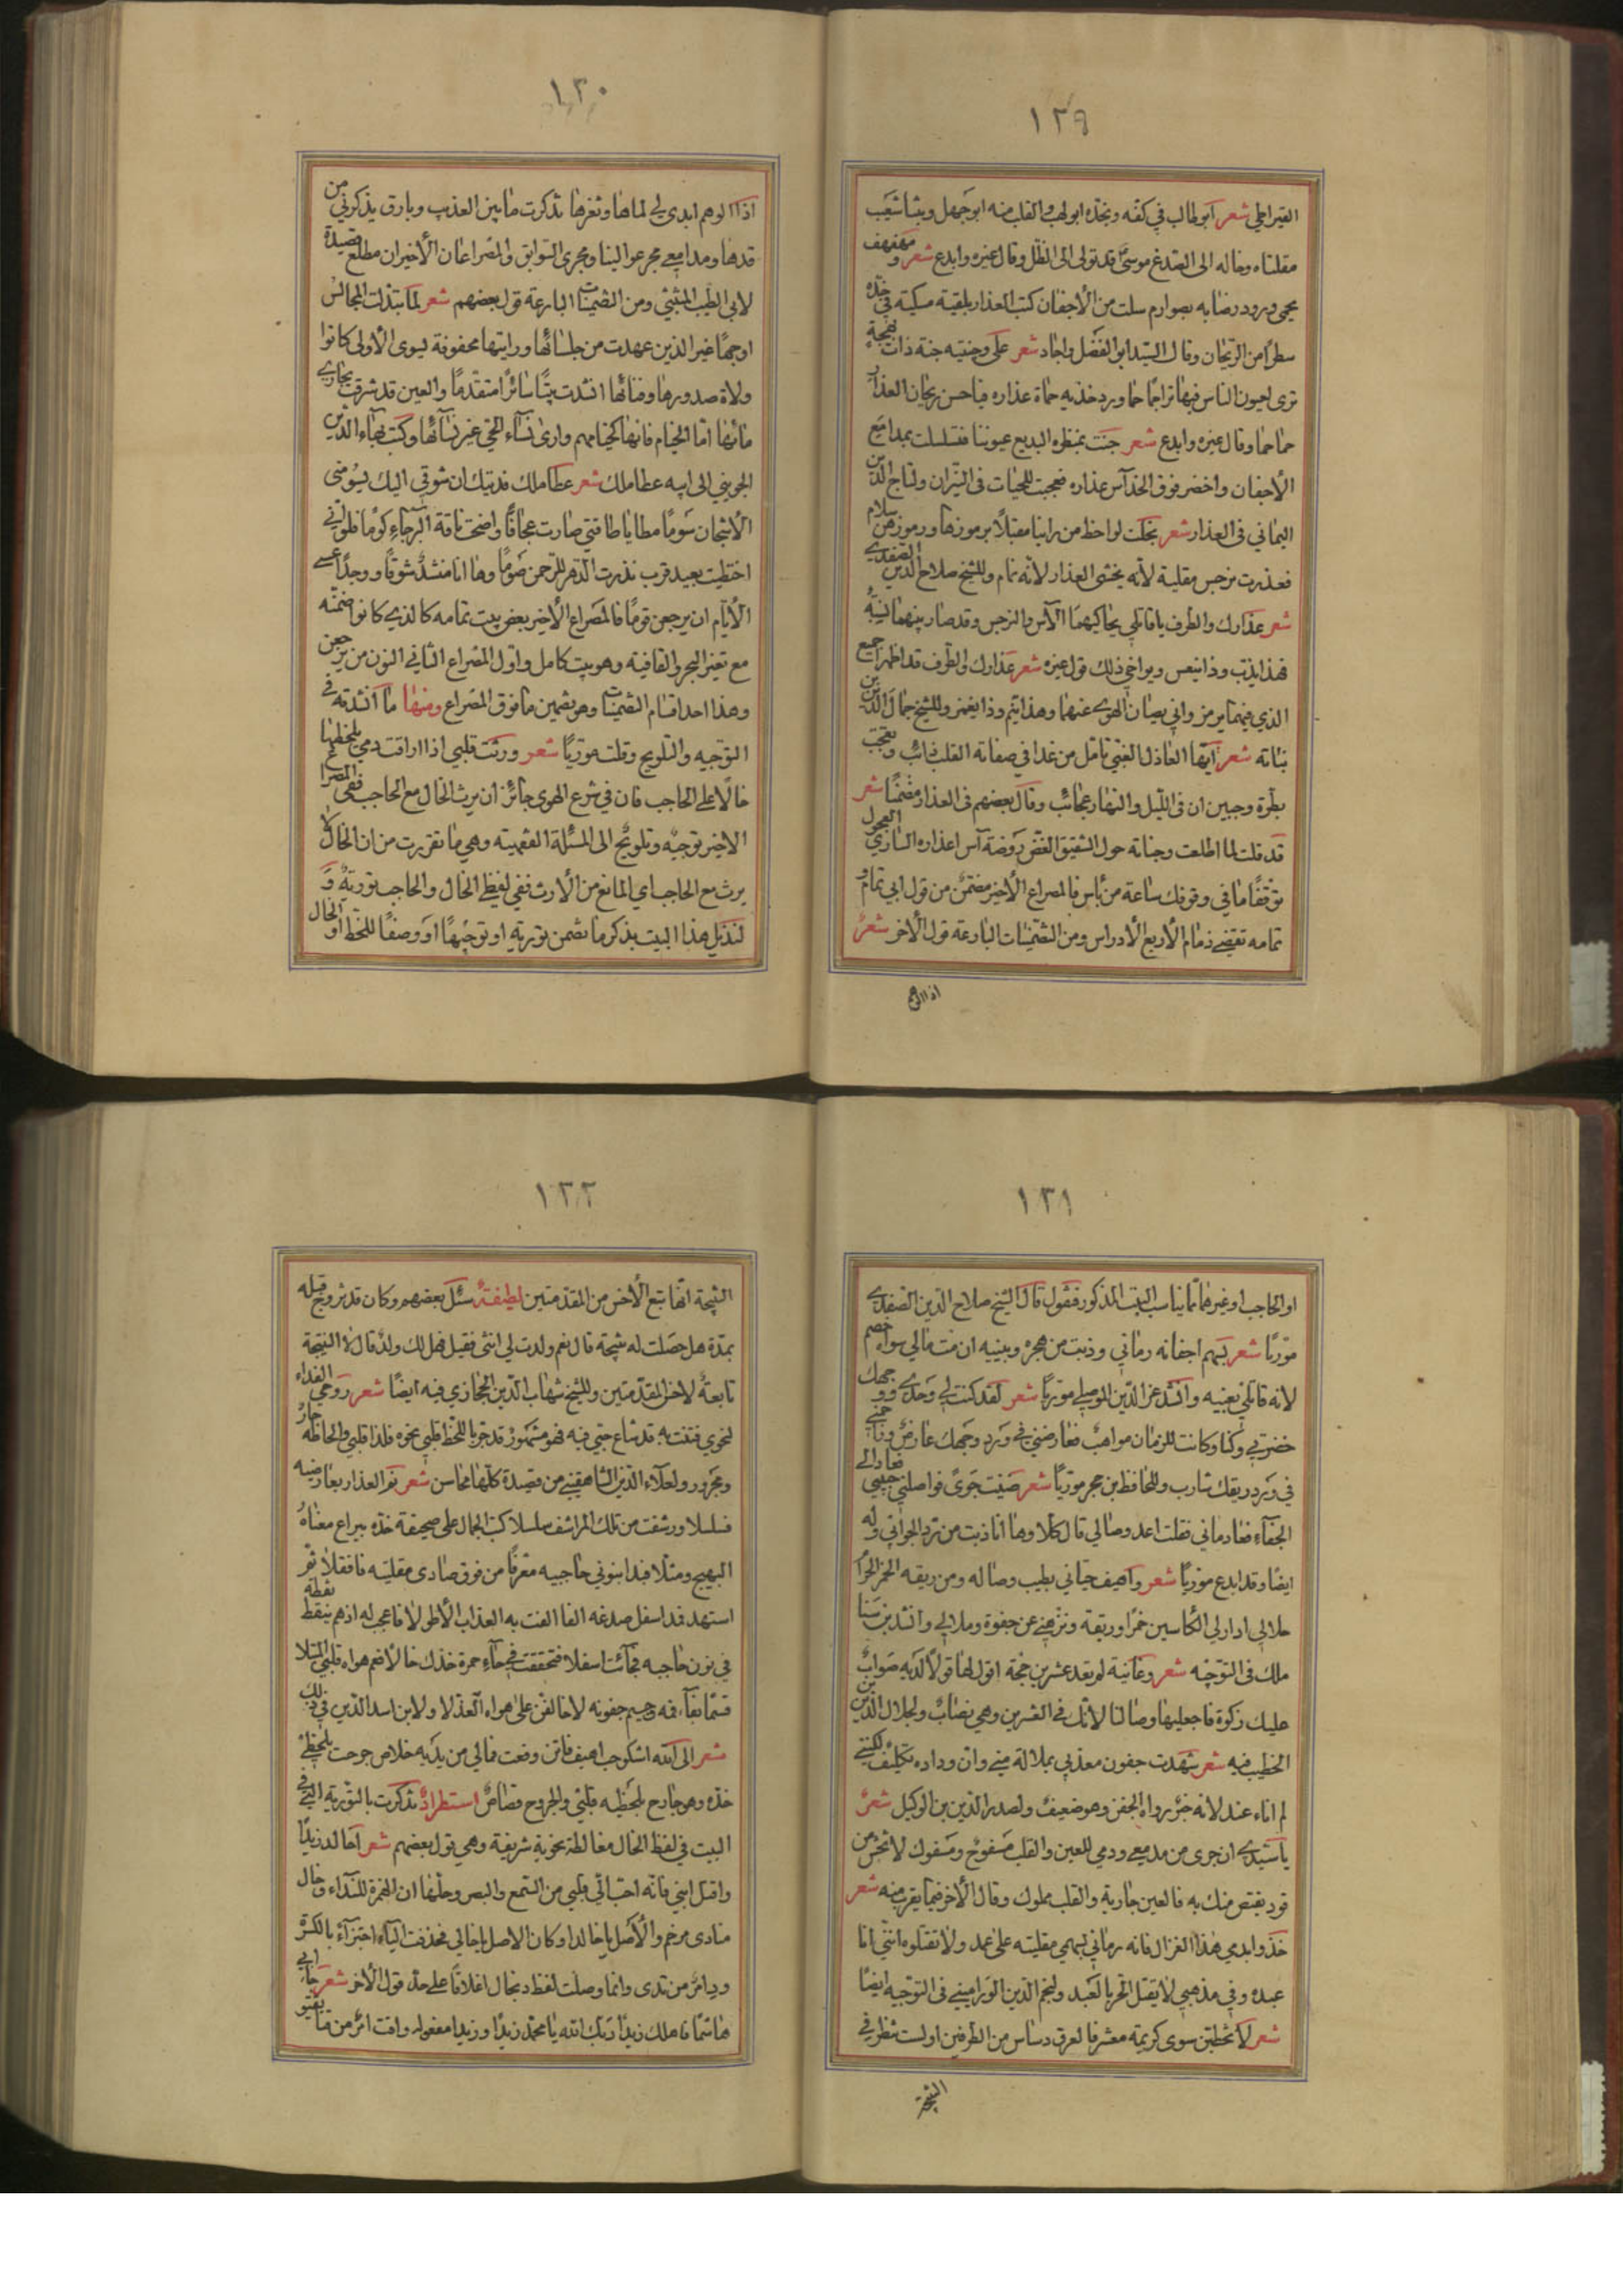 ١٢٩
القيراطي شعر ابو طالب في كفه وبخده ابو لهب والقلب منه ابو جهل وبنتا شعيب
مقلتاه وخاله الى الصدغ موسى قد تولى الى الظل وقال غيره وابدع شعر ومهفهف
يحمى ورود رضابه بصوارم سلت من الأجفان كتب العذار بليقة مسكيته في خده
سطرا من الريحان وقال السيد ابو الفضل واجاد شعر على وجنتيه جنة ذات بهجة
ترى لعيون الناس فيها تزاحما حما ورد خديه حماة عذاره فيا حسن ريحان العذار
حما حما وقال غيره وابدع شعر جنت بمنظره البديع عيوننا فتسلسلت بمدامع
الأجفان واخضر فوق الخد آس عذاره فعجبت للجنات في النيران ولتاج الدين
اليماني في العذار شعر بخلت لواحظ من راينا مقبلا برموزها ورموزهن سلام
فعذرت نرجس مقلتيه لأنه يخشى العذار لأنه نمام وللشيخ صلاح الدين الصفدي
شعر عذارك والطرف يا قاتلي يحاكيهما الآس والنرجس وقد صار بينهما نسبة
فهذا يذب وذا ينعس ويواخي ذلك قول غيره شعر عذارك والطرف قد اظهرا جميع
الذي فيهما يرمز واني يصان الهوى عنهما وهذا ينم وذا يغمز وللشيخ جمال الدين بن
نباته شعر ايها العاذل الغبي تامل من غدا في صفاته القلب ذائب وتعجب
بطرة وجبين ان في الليل والنهار عجائب وقال بعضهم في العذار مضمنا شعر
قد قلت لما اطلعت وجناته حول الشقيق الغض روضة آس اعذاره الساري العجول
توقفا ما في وقوفك ساعة من باس فالمصراع الأخير مضمن من قول ابي تمام و
تمامه تقضي ذمام الأربع الأدراس ومن التضمينات البارعة قول الآخر شعر
اذا الوهم
١٣٠
اذا الوهم ابدى لي لماها وثغرها تذكرت ما بين العذيب وبارق يذكرني من
قدها ومدامعي مجر عوالينا ومجرى السوابق والمصراعان الأخيران مطلع قصيدة
لابي الطيب المتنبي ومن التضمينات البارعة قول بعضهم شعر لما تبذلت المجالس
اوجها غير الذين عهدت من جلسائها ورايتها محفوفة بسوى الأولى كانوا
ولاة صدورها وفنائها انشدت بيتا سائرا متقدما والعين قد شرقت بجاري
مائها اما الخيام فانها كخيامهم وارى نساء الحي غير نسائها وكتب بهاء الدين
الجويني الى ابيه عطا ملك شعر عطا ملك فديتك ان شوقي اليك يسومنى
الأشجان سوما مطايا طاقتي صارت عجافا واضحت ناقة الرجاء كوما فلو اني
احتظيت بعيد قرب نذرت الدهر للرحمن صوما وها انا منشد شوقا ووجدا عسى
الأيام ان يرجعن قوما فالمصراع الأخير بعض بيت تمامه كالذي كانوا ضمنه
مع تغير البحر والقافية وهو بيت كامل واول المصراع الثاني النون من يرجعن
وهذا احد اقسام التضمينات وهو تضمين ما فوق المصراع ومنها ما انشدته في
التوجيه والتلويح وقلت موريا شعر ورثت قلبي اذا اراقت دمي بلحظها
خالا على الحاجب فان في شرع الهوى جائز ان يرث الخال مع الحاجب ففي المصراع
الاخير توجيه وتلويح الى المسئلة الفقهية وهي ما تقررت من ان الخال لا
يرث مع الحاجب اي المانع من الأرث ففي لفظي الخال والحاجب تورية و
لنذيل هذا البيت بذكر ما تضمن تورية او توجيها او وصفا للخط او الخال
١٣١
او الحاجب او غيرها مما يناسب البيت المذكور فنقول قال الشيخ صلاح الدين الصفدي
موريا شعر بسهم اجفانه رماني وذبت من هجره وبينه ان مت مالي سواه خصم
لانه قاتلي بعينه وانشد عز الدين الموصلي موريا شعر لقد كنت لي وحدي ووجهك
حضرتي وكنا وكانت للزمان مواهب فعارضني في ورد وجهك عارض وزاحمني
في ورد ريقك شارب وللحافظ بن حجر موريا شعر ضنيت جوى فواصلني حبيبي فعاد الى
الجفاء فعاد ماني فقلت اعد وصالي قال كلا وها انا ذبت من رد الجواني وله
ايضا وقد ابدع موريا شعر واهيف حياني بطيب وصاله ومن ريقه الخمر الحرام
حلالي ادار لي الكاسين خمرا وريقة ونزهني عن جفوة وملالي وانشد بن سنا
ملك في التوجيه شعر وغانية لم تعد عشرين حجة اقول لها قولا لديه صواب
عليك زكوة فاجعليها وصالنا لأنك في العشرين وهي نصاب ولجلال الدين بن
الخطيب فيه شعر شهدت جفون معذبي بملالة مني وان وداده تكليف لكنني
لم اناء عند لانه خبر رواه الجفن وهو ضعيف ولصدر الدين بن الوكيل شعر
يا سيدي ان جرى من مدمعي ودمي للعين والقلب مسفوح ومسفوك لا تخش من
قود يقتص منك به فالعين جارية والقلب مملوك وقال الآخر فيما يقرب منه شعر
خذوا بدمي هذا الغزال فانه رماني بسهمي مقلتيه على عمد ولا تقتلوه انني انا
عبده وفي مذهبي لا يقتل الحر بالعبد ولنجم الدين الوراميني في التوجيه ايضا
شعر لا تخطبن سوى كريمة معشر فالعرق دساس من الطرفين اولست تنظر في
النتيجة
١٣٢
النتيجة انها تبع الأخس من المقدمتين لطيفة سئل بعضهم وكان قد تزوج قبله
بمدة هل حصلت له نتيجة قال نعم ولدت لي انثى فقيل فهل لك ولد قال لا النتيجة
تابعة لاخس المقدمتين وللشيخ شهاب الدين الحجازي فيه ايضا شعر روحي الفداء
لنحوي فتنت به قد شاع حبي فيه فهو مشهور قد جر باللحظ قلبي نحوه فلذا قلبي والحاظه جار
ومجرور ولعلاء الدين الشاهيني من قصيدة كلها محاسن شعر نم العذار بعارضيه
فسلسلا ورشفت من تلك المراشف سلسلا كتب الجمال على صحيفة خده ببراع معناه
البهيج ومثلا فبدا بنوني حاجبيه معرقا من فوق صادى مقلتيه فاقفلا ثم
استهد فدا اسفل صدغه الفا الفت به العذاب الأطولا فاعجب له اذ هم ينقط نقطة
في نون حاجبه فجائت اسفلا فتحققت في حاء حمرة خدك خالا فعم هواه قلبي المبتلا
قسما بفاء فمه وجيم جفونه لاخالفن على هواه العذلا ولابن اسد الدين في ذلك
شعر الى الله اشكو حب اهيف فاتن وقعت فما لي من يديه خلاص جرحت بلحظي
خده وهو جارح بلحظيه قلبي والجروح قصاص استطراد تذكرت بالتورية التي في
البيت في لفظ الخال مغالطة نحوية شريفة وهي قول بعضهم شعر اخالد زيدا
واقبل ابني فانه احب الى قلبي من السمع والبصر وحلها ان الهمزة للنداء وخال
منادى مرخم والأصل يا خالد او كان الاصل يا خالي فحذفت الياء اجتزاء بالكسرة
ود امر من تدى وانما وصلت لفظ د بخال اغلاقا على حد قول الآخر شعر جا ابي
هاشما ناهلك زيدا ربك الله يا محمد زيدا وزيدا مفعوله واقت امر من مايقتو